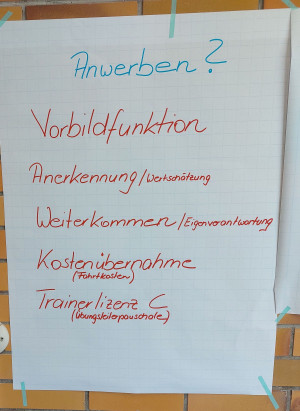 Anwerben?
Vorbildfunktion
Anerkennung/Wertschätzung
Weiterkommen/Eigenverantwortung
Kostenübernahme
(Fahrtkosten)
Trainerlizenz C
(Übungsleiterpauschale)